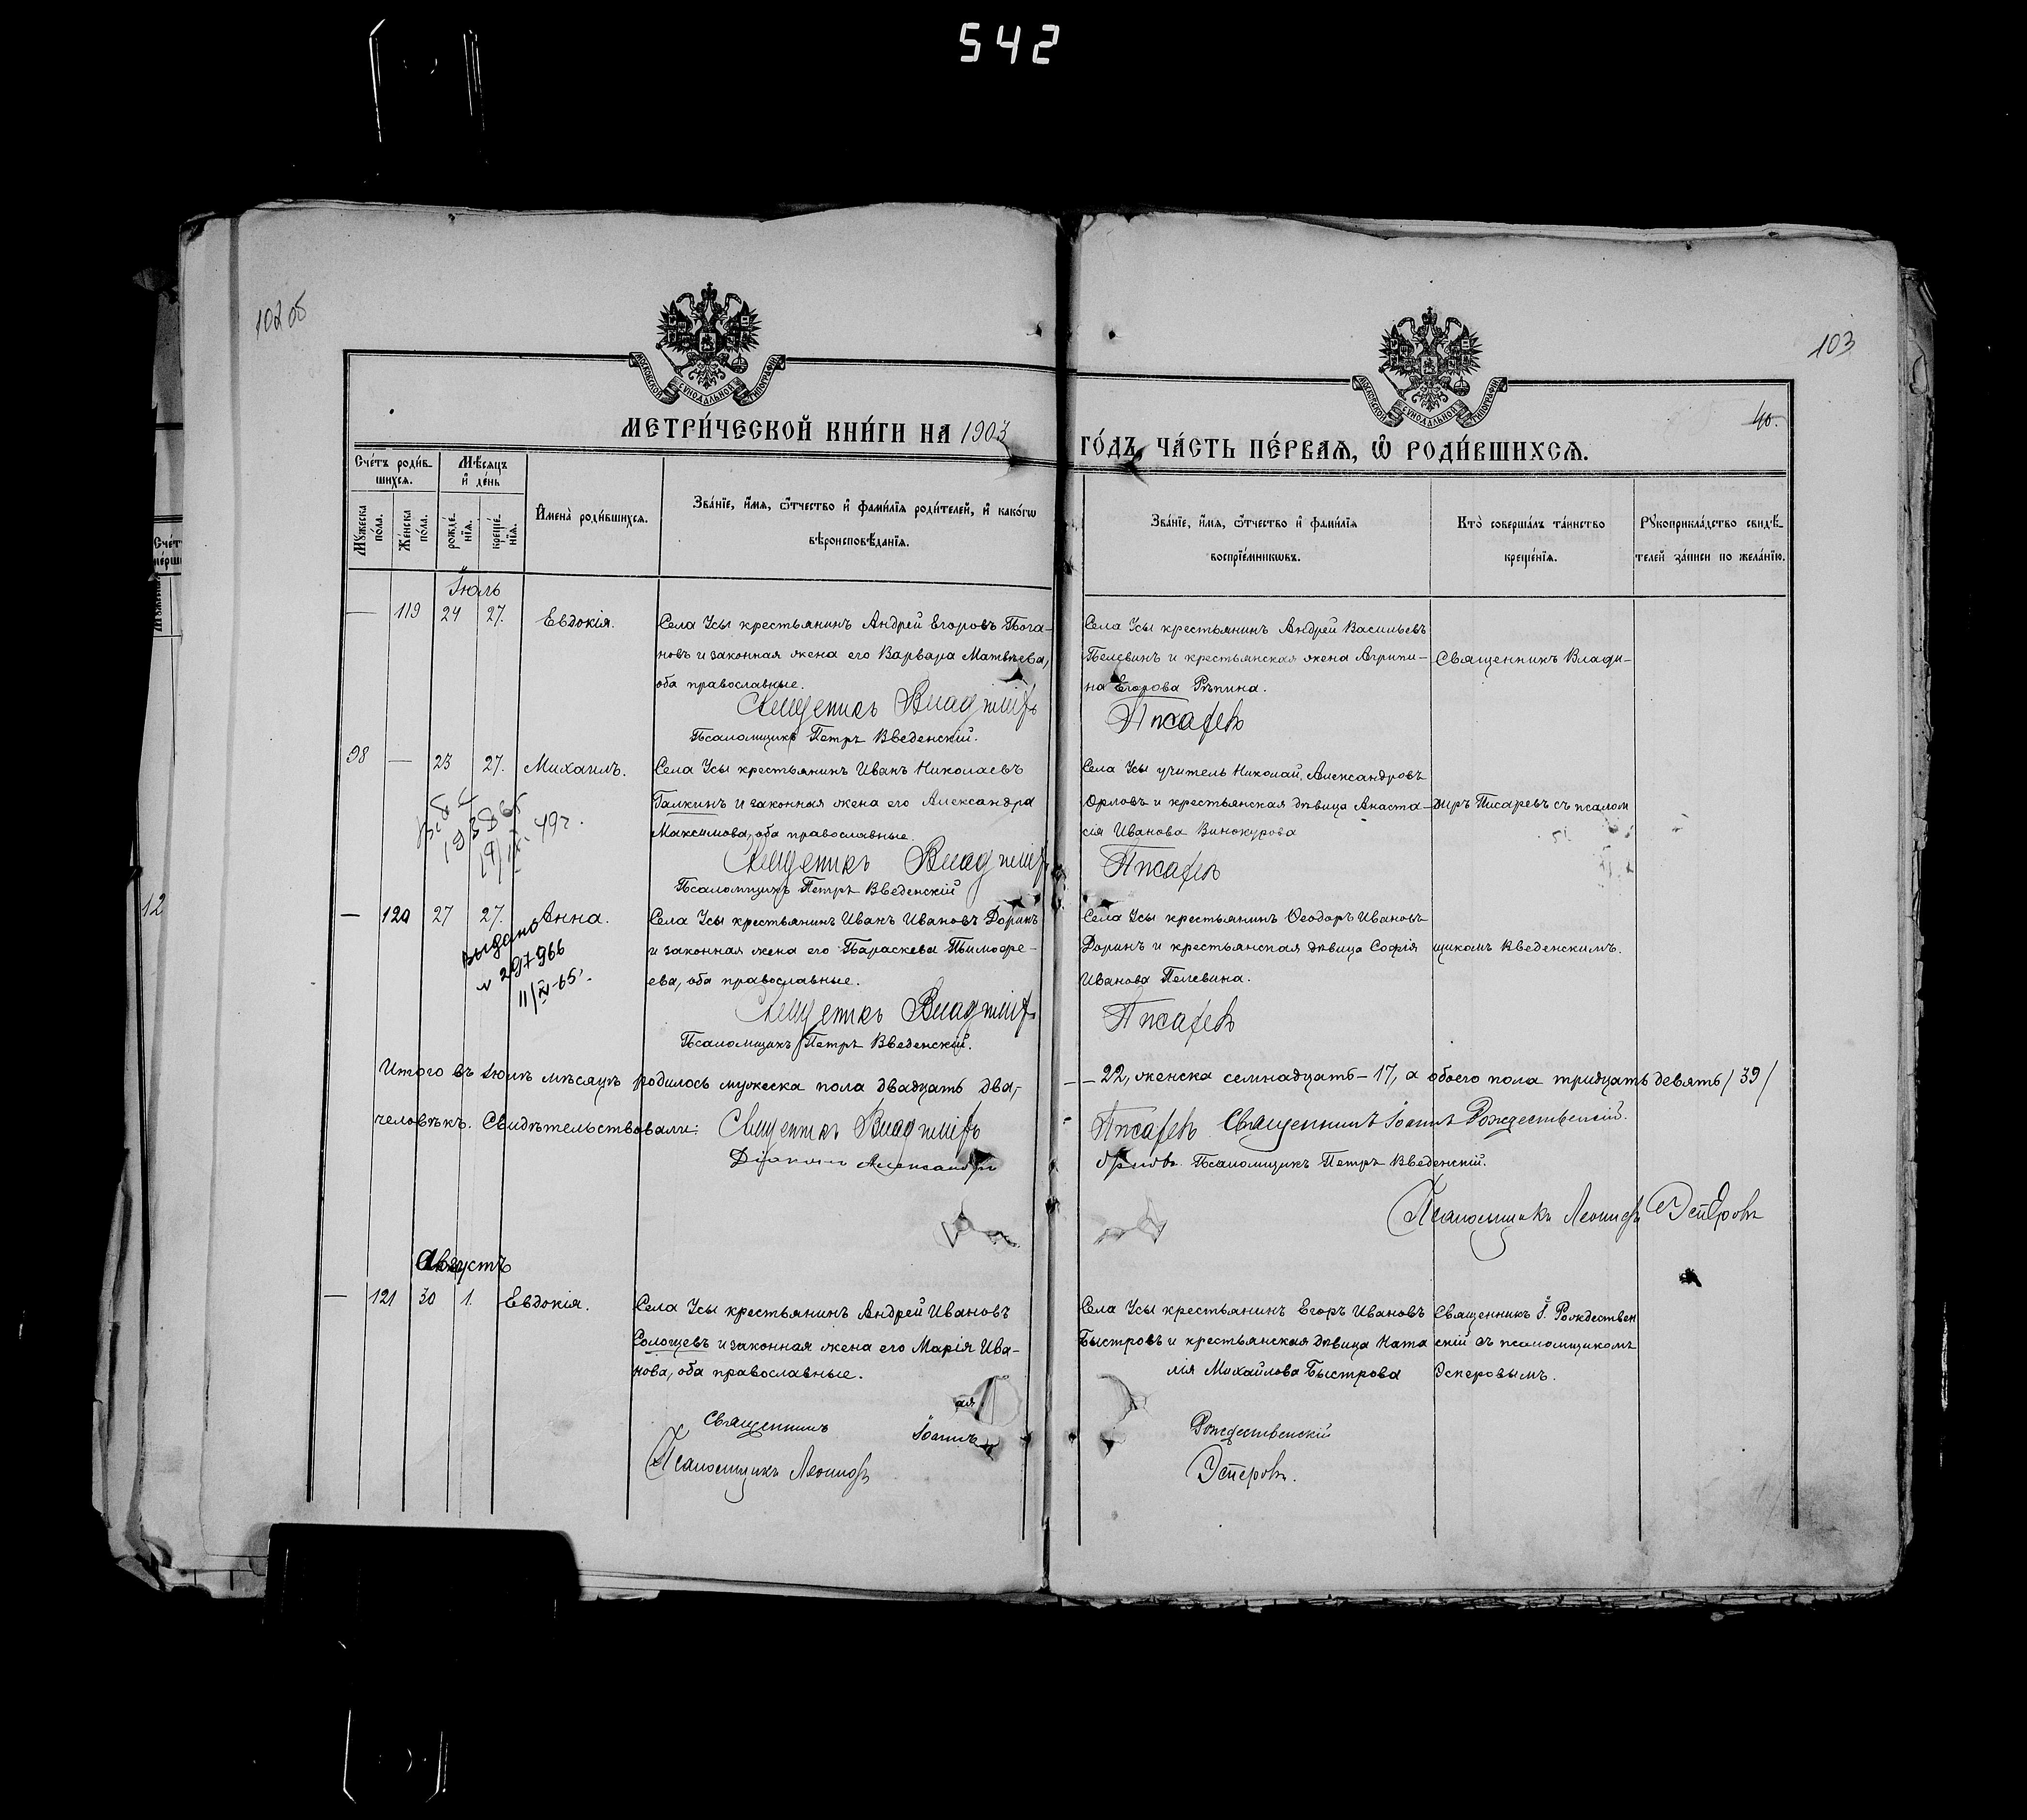 542
102 об
103
40.
МОСКОВСКОЙ СѴНОДАЛЬНОЙ ТИПОГРАФІИ
МОСКОВСКОЙ СѴНОДАЛЬНОЙ ТИПОГРАФІИ
МЕТРИ́ЧЕСКОЙ КНИ́ГИ НА 1903
ГО́ДЪ, ЧА́СТЬ ПЕ́РВАЯ, Ѽ РОДИ́ВШИХСЯ.
Сче́тъ роди́вшихся.
Мѣ́сяцъ и҆ де́нь
Мꙋ́жеска по́ла.
Же́нска по́ла.
рожде́нїѧ.
креще́нїѧ.
И҆мена̀ роди́вшихся.
Зва́нїе, и҆́мѧ, ѻ҆́тчество и҆ фами́лїѧ роди́телей, и҆ како́гѡ
вѣроисповѣ́данїѧ.
Зва́нїе, и҆́мѧ, ѻ҆́тчество и҆ фами́лїѧ
воспрїе́мникѡвъ.
Кто̀ соверша́лъ та́инство
креще́нїѧ.
Рꙋкоприкла́дство свидѣ́-
телей за́писи по жела́нїю.
Іюль
— 119 24 27. Евдокія.
Села Усы крестьянинъ Андрей Егоровъ Пога-
новъ и законная жена его Варвара Матвѣева,
оба православные.
Священникъ Владиміръ
Псаломщикъ Петръ Введенскій.
Села Усы крестьянинъ Андрей Васильевъ
Пелевинъ и крестьянская жена Агрипи-
на Егорова Рѣпина.
Писаревъ
Священникъ Влади-
98 — 23 27. Михаилъ.
Села Усы крестьянинъ Иванъ Николаевъ
Галкинъ и законная жена его Александра
Максимова, оба православные.
Священникъ Владиміръ
Псаломщикъ Петръ Введенскій
Села Усы учитель Николай Александровъ
Орловъ и крестьянская дѣвица Анаста-
сія Иванова Винокурова
Писаревъ
міръ Писаревъ съ псалом
— 120 27 27. Анна.
выдано
№ 297966
11/IV-65г.
Села Усы крестьянинъ Иванъ Ивановъ Доринъ
и законная жена его Параскева Тимофе-
ева, оба православные.
Священникъ Владиміръ
Псаломщикъ Петръ Введенскій.
Села Усы крестьянинъ Ѳеодоръ Ивановъ
Доринъ и крестьянская дѣвица Софія
Иванова Пелевина.
Писаревъ
щикомъ Введенскимъ.
Итого въ Іюлѣ мѣсяцѣ родилось мужеска пола двадцать два,-
— 22, женска семнадцать - 17, а обоего пола тридцать девять / 39 /
человѣкъ. Свидѣтельствовали: Священникъ Владиміръ
Писаревъ Священникъ Іоаннъ Рождественскій.
Діаконъ Александръ
Орловъ. Псаломщикъ Петръ Введенскій.
Псаломщикъ Леонидъ Эсперовъ
Августъ
— 121 30 1. Евдокія.
Села Усы крестьянинъ Андрей Ивановъ
и законная жена его Марія Ива-
нова, оба православные.
Священникъ Іоаннъ
Псаломщикъ Леонидъ
Села Усы крестьянинъ Егоръ Ивановъ
Быстровъ и крестьянская дѣвица Ната
лія Михайлова Быстрова
Рождественскій
Эсперовъ.
Священникъ І. Рождествен
скій съ псаломщикомъ
Эсперовымъ.
12